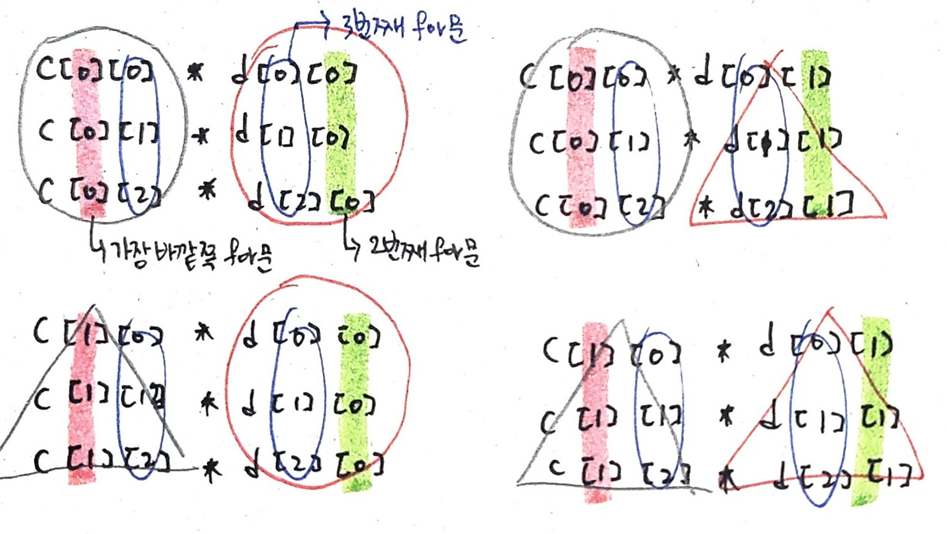 3번째 for문
C[0][0] * d[0][0]
C[0][1] * d[1][0]
C[0][2] * d[2][0]
가장 바깥쪽 for문
2번째 for문
C[0][0] * d[0][1]
C[0][1] * d[1][1]
C[0][2] * d[2][1]
C[1][0] * d[0][0]
C[1][1] * d[1][0]
C[1][2] * d[2][0]
C[1][0] * d[0][1]
C[1][1] * d[1][1]
C[1][2] * d[2][1]